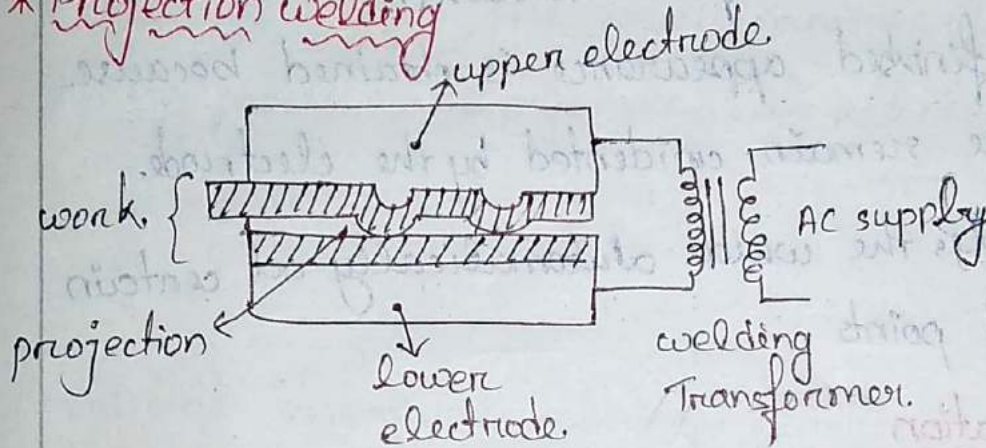 * Projection welding
upper electrode
work.
AC supply
projection
lower
electrode.
welding
Transformer.